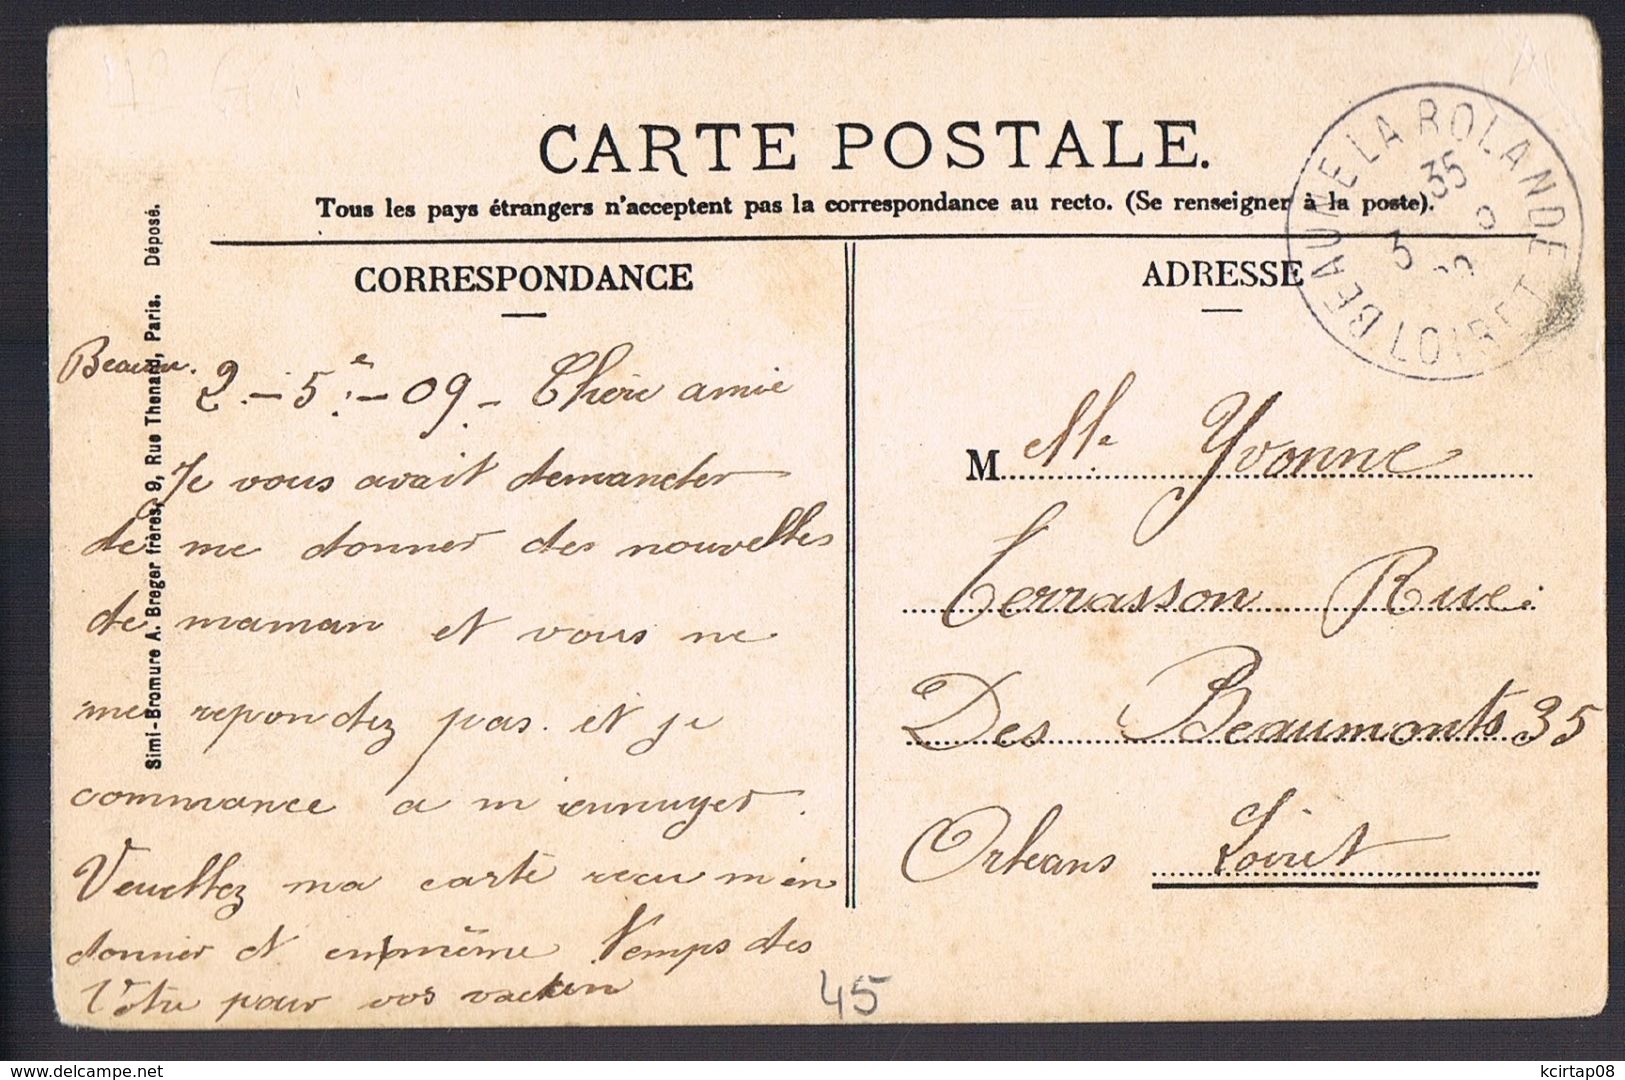 CARTE POSTALE.
Tous les pays étrangers n'acceptent pas la correspondance au recto. (Se renseigner à la poste).
BEAUNE LA ROLANDE
LOIRET
35
5
CORRESPONDANCE
Beaune. 2.-5.e-09- Chère amie
Je vous avait demander
de me donner des nouvelles
de maman et vous ne
me repondez pas. et je
commance a m'ennuyer.
Veuillez ma carte recu m'en
donner et en même temps des
Votre pour vos
45
ADRESSE
M elle Yvonne
Terrasson Rue:
Des Beaumonts 35
Orleans Loiret
Simi-Bromure A. Breger frères, 9, Rue Thenard, Paris. Déposé.
delcampe.net
kcirtap08